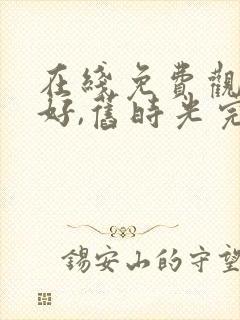 在綫免費觀
好,舊時光完
錫安山的守望